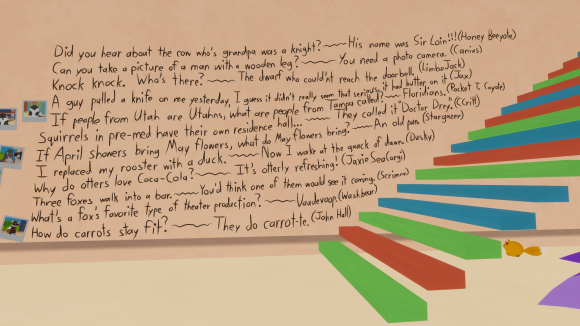 Did you hear about the cow who's grandpa was a knight? His name was Sir Loin!!! (Honey Beeyole)
Can you take a picture of a man with a wooden leg? You need a photo camera. (Canius)
Knock knock. Who's there? The dwarf who couldn't reach the doorbell. (LimboJack)
A guy pulled a knife on me yesterday, I guess it didn't really seem that serious, it had butter on it (Jax)
If people from Utah are Utahns, what are people from Tampa called? Floridians. (Pocket T. Coyote)
Squirrels in pre-med have their own residence hall... They called it Doctor Drey. (Crill)
If April showers bring May flowers, what do May flowers bring? An old pun. (Stargazer)
I replaced my rooster with a duck. Now I wake at the quack of dawn. (Dusky)
Why do otters love Coca-Cola? It's otterly refreshing! (JaxieSeaCorgi)
Three foxes walk into a bar. You'd think one of them would see it coming. (Scrimno)
What's a fox's favorite type of theater production? Vaudevoop. (Washbear)
How do carrots stay fit? They do carrot-te. (John Hall)